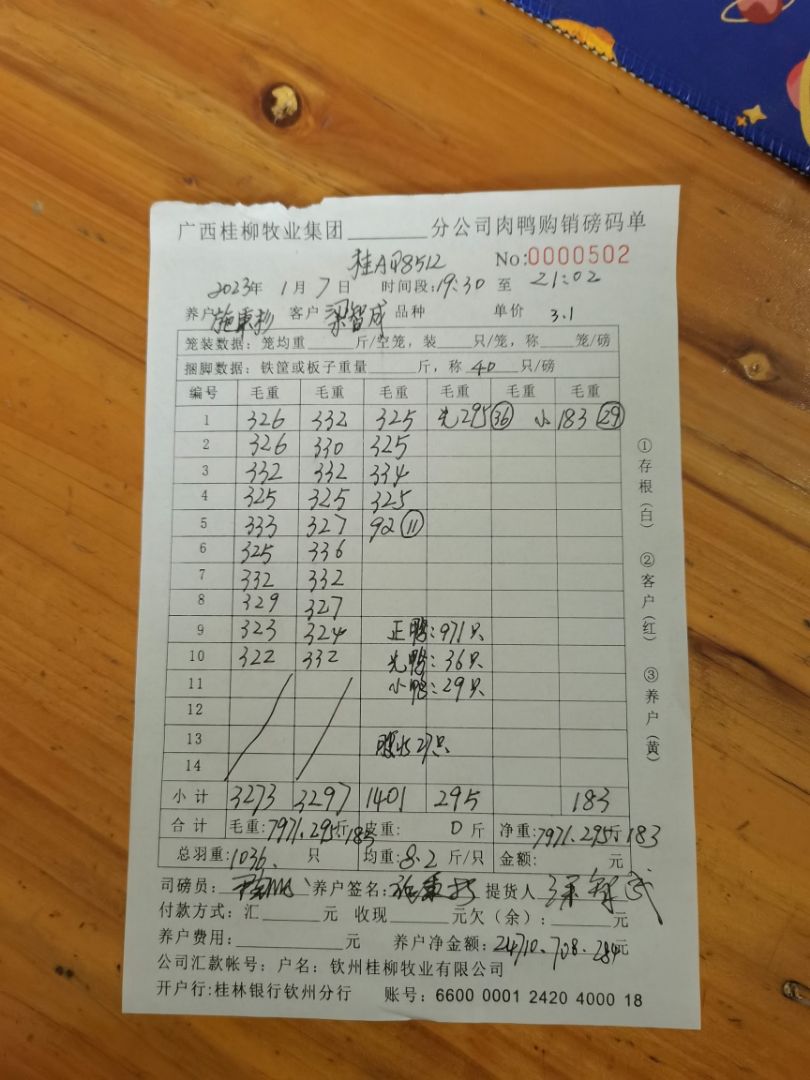 广西桂柳牧业集团________分公司肉鸭购销磅码单
桂A 8512 No:0000502
2023年 1月 7日 时间段:19:30 至 21:02
养户 客户 梁智成 品种 单价 3.1
笼装数据: 笼均重____斤/空笼, 装____只/笼, 称____笼/磅
捆脚数据: 铁筐或板子重量____斤, 称 40 只/磅
编号 毛重 毛重 毛重 毛重 毛重 毛重
1 326 332 325 光295(36) 小 183(29)
2 326 330 325
3 332 332 334
4 325 325 325
5 333 327 92(11)
6 325 336
7 332 332
8 329 327
9 323 324 正鸭:971只
10 322 332 光鸭:36只
11 小鸭:29只
12
13 27只
14
小计 3273 3297 1401 295 183
合计 毛重:7971.295斤.183 皮重: 0斤 净重:7971.295斤183
总羽重:1036. 只 均重:8.2斤/只 金额: 元
司磅员: 养户签名: 提货人
付款方式: 汇____元 收现____元欠(余):____元
养户费用:________元 养户净金额:24710.708.284元
公司汇款帐号: 户名: 钦州桂柳牧业有限公司
开户行:桂林银行钦州分行 账号: 6600 0001 2420 4000 18
①存根(白) ②客户(红) ③养户(黄)